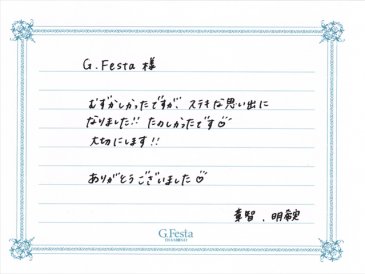 G.Festa 様
むずかしかったですが、ステキな思い出に
なりました!! たのしかったです♡
大切にします!!
ありがとうございました♡
G.Festa